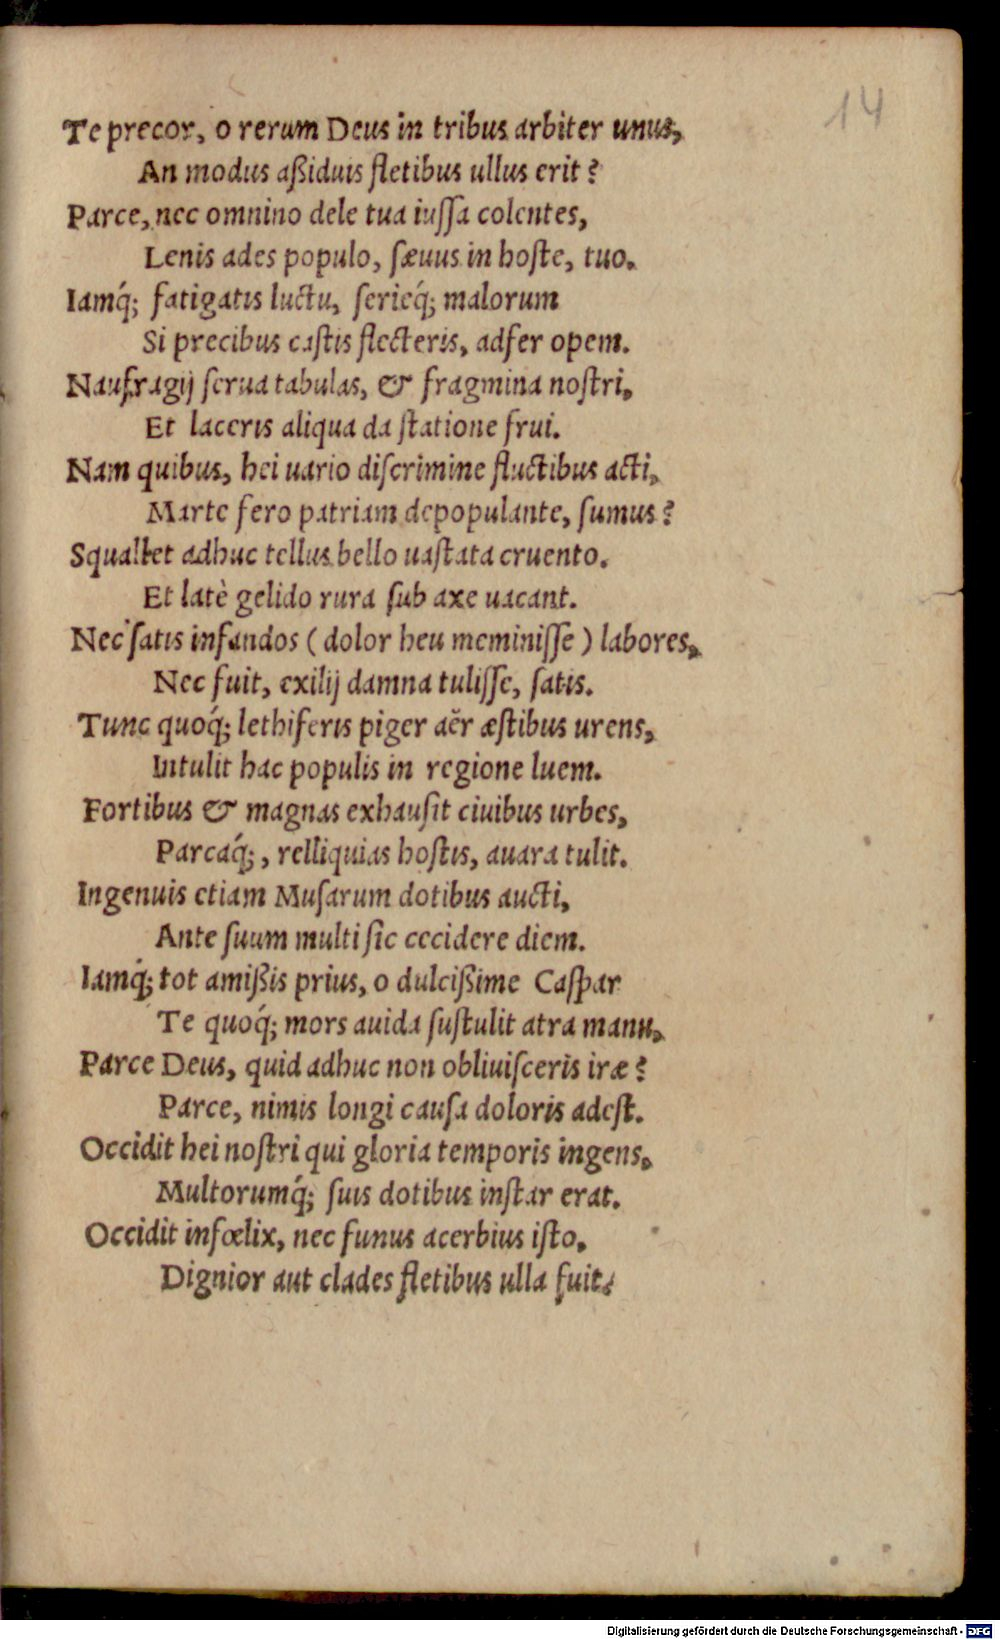 14
Te precor, o rerum Deus in tribus arbiter unus,
An modus aßiduis fletibus ullus erit?
Parce, nec omnino dele tua iuſſa colentes,
Lenis ades populo, ſæuus in hoſte, tuo.
Iamq́; fatigatis luctu, ſerieq́; malorum
Si precibus caſtis flecteris, adfer opem.
Naufragij ſerua tabulas, & fragmina noſtri,
Et laceris aliqua da ſtatione frui.
Nam quibus, hei uario diſcrimine fluctibus acti,
Marte fero patriam depopulante, ſumus?
Squallet adhuc tellus bello uaſtata cruento.
Et latè gelido rura ſub axe uacant.
Nec ſatis infandos (dolor heu meminiſſe) labores,
Nec fuit, exilij damna tuliſſe, ſatis.
Tunc quoq́; lethiferis piger aër æſtibus urens,
Intulit hac populis in regione luem.
Fortibus & magnas exhauſit ciuibus urbes,
Parcaq́;, relliquias hoſtis, auara tulit.
Ingenuis etiam Muſarum dotibus aucti,
Ante ſuum multi ſic cecidere diem.
Iamq́; tot amißis prius, o dulcißime Caſpar
Te quoq́; mors auida ſuſtulit atra manu.
Parce Deus, quid adhuc non obliuiſceris iræ?
Parce, nimis longi cauſa doloris adeſt.
Occidit hei noſtri qui gloria temporis ingens,
Multorumq́; ſuis dotibus inſtar erat.
Occidit infœlix, nec funus acerbius iſto,
Dignior aut clades fletibus ulla fuit.
Digitalisierung gefördert durch die Deutsche Forschungsgemeinschaft - DFG